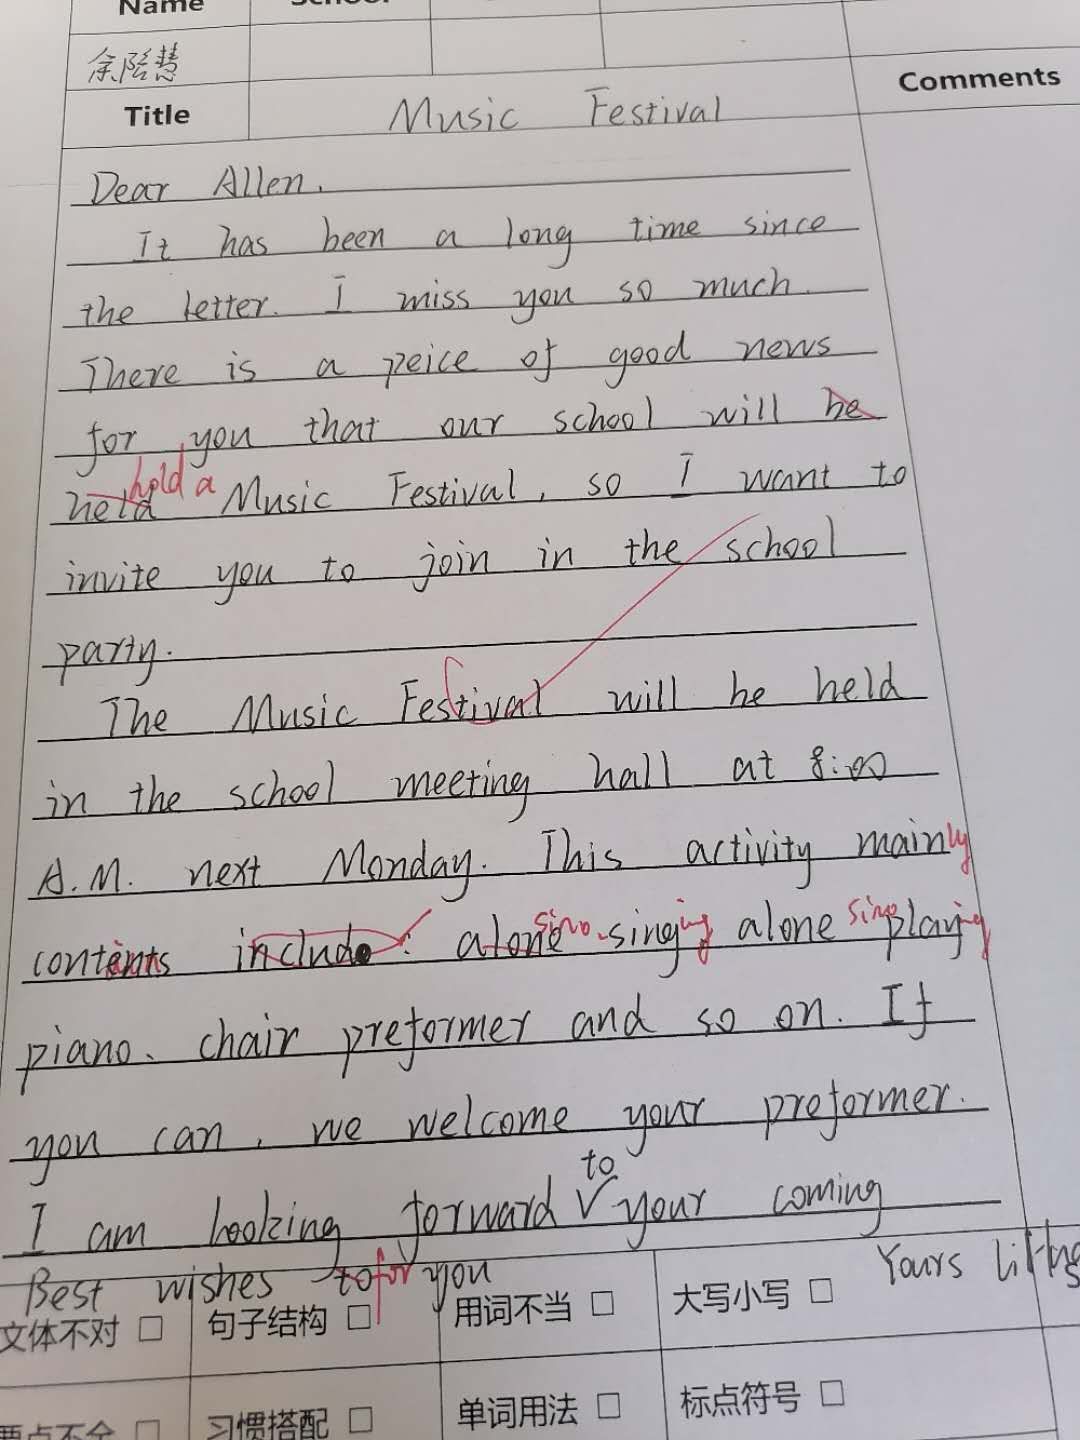 Name
余陰慧
Comments
Title Music Festival
Dear Allen,
It has been a long time since
the letter. I miss you so much.
There is a peice of good news
for you that our school will be
held hold a Music Festival, so I want to
invite you to join in the school
party.
The Music Festival will be held
in the school meeting hall at 8:00
A.M. next Monday. This activity mainly
contents include: alone singing alone playing
piano、chair preformer and so on. If
you can, we welcome your preformer.
to
I am looking forward your coming
Best wishes to for you Yours
文体不对 □ 句子结构 □ 用词不当 □ 大写小写 □
要点不全 □ 习惯搭配 □ 单词用法 □ 标点符号 □